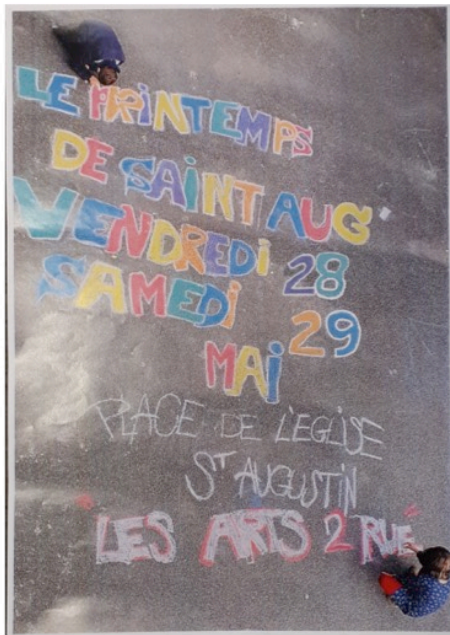 LE PRiNTEMPS
DE SAiNT AUG'
VENDREDi 28
SAMEDi 29
MAi
PLACE DE L'EGLiSE
ST AUGUSTiN
"LES ARTS 2 RUE"